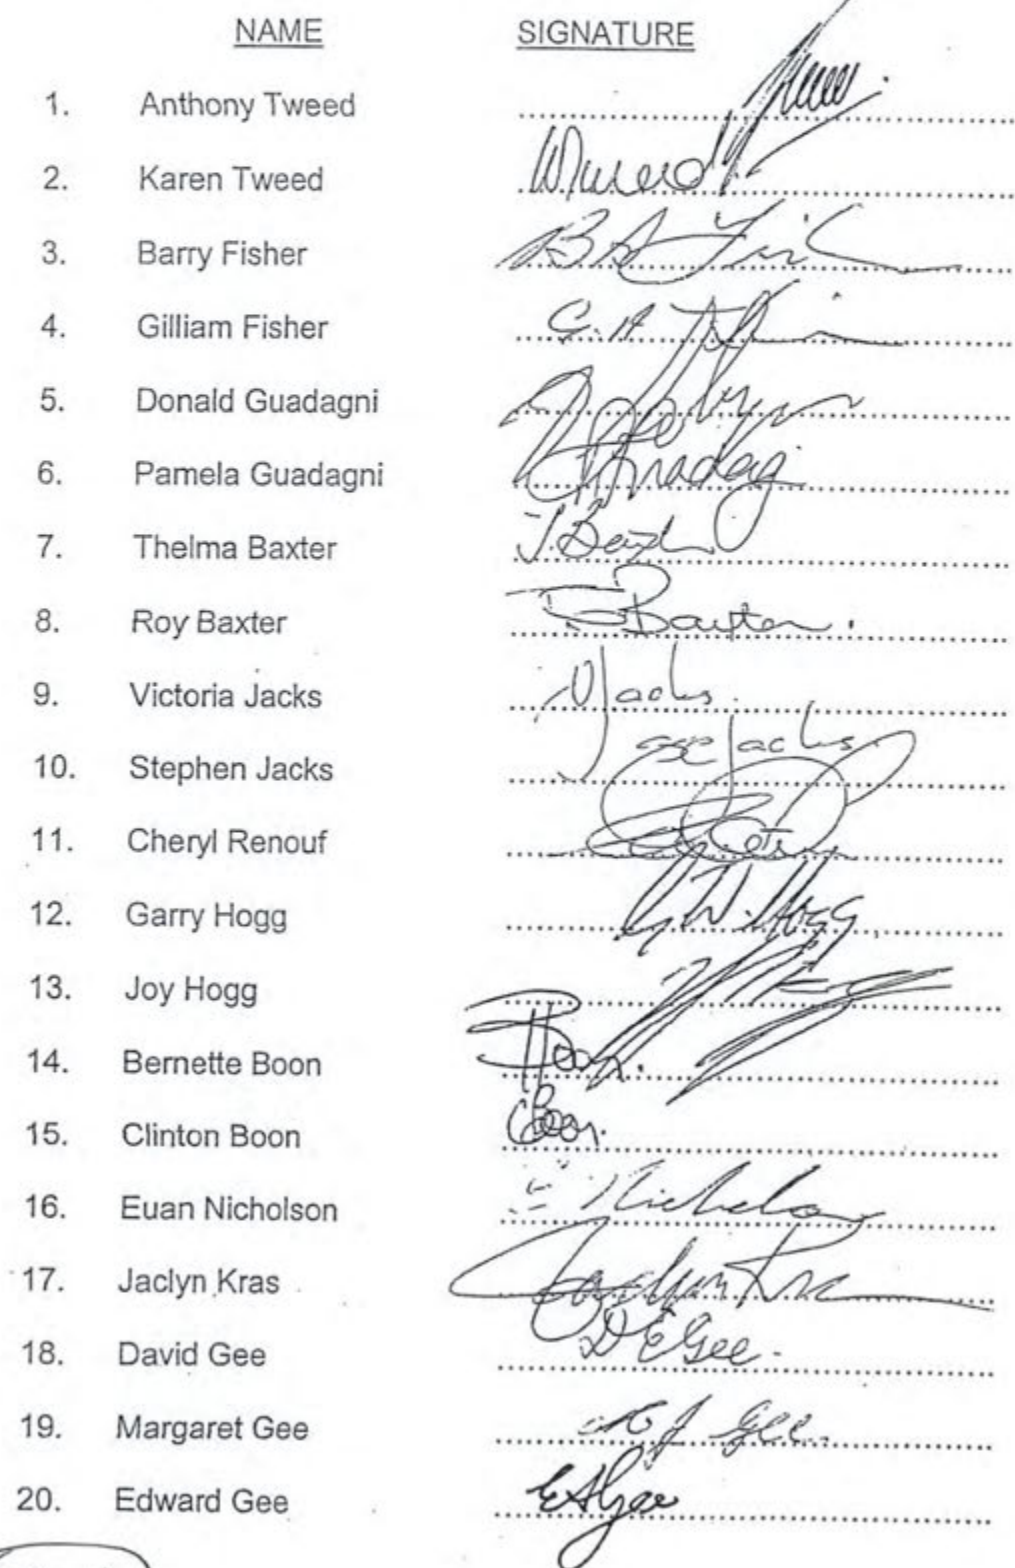 NAME SIGNATURE
1. Anthony Tweed
2. Karen Tweed
3. Barry Fisher
4. Gilliam Fisher
5. Donald Guadagni
6. Pamela Guadagni
7. Thelma Baxter T. Baxter
8. Roy Baxter Baxter.
9. Victoria Jacks V Jacks.
10. Stephen Jacks Jacks
11. Cheryl Renouf
12. Garry Hogg G W. Hogg
13. Joy Hogg
14. Bernette Boon Boon.
15. Clinton Boon Boon.
16. Euan Nicholson E Nicholson
17. Jaclyn Kras Jaclyn Kras
18. David Gee D E Gee.
19. Margaret Gee M J Gee.
20. Edward Gee E A Gee